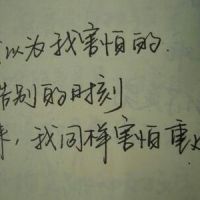 以为我害怕的
告别的时刻
来，我同样害怕重